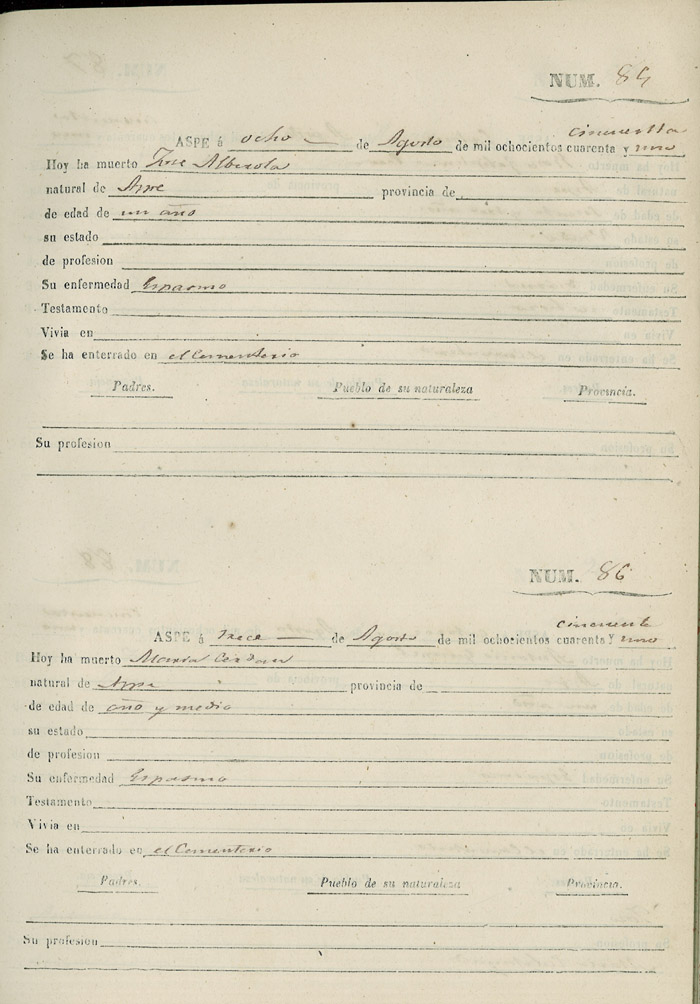 NUM. 85
cincuenta
ASPE á ocho de Agosto de mil ochocientos cuarenta y uno
Hoy ha muerto Jose Alberola
natural de Aspe provincia de
de edad de un año
su estado
de profesion
Su enfermedad Espasmo
Testamento
Vivia en
Se ha enterrado en el Cementerio
Padres. Pueblo de su naturaleza Provincia.
Su profesion
NUM. 86
cincuenta
ASPE á trece de Agosto de mil ochocientos cuarenta y uno
Hoy ha muerto Maria Cerdan
natural de Aspe provincia de
de edad de año y medio
su estado
de profesion
Su enfermedad Espasmo
Testamento
Vivia en
Se ha enterrado en el Cementerio
Padres. Pueblo de su naturaleza Provincia.
Su profesion